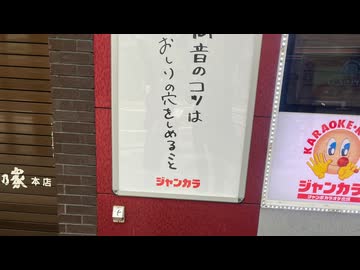 高音のコツは
おしりの穴をしめること
ジャンカラ
乃家 本店
KARAOKE
ジャンカラ
ジャンボカラオケ広場